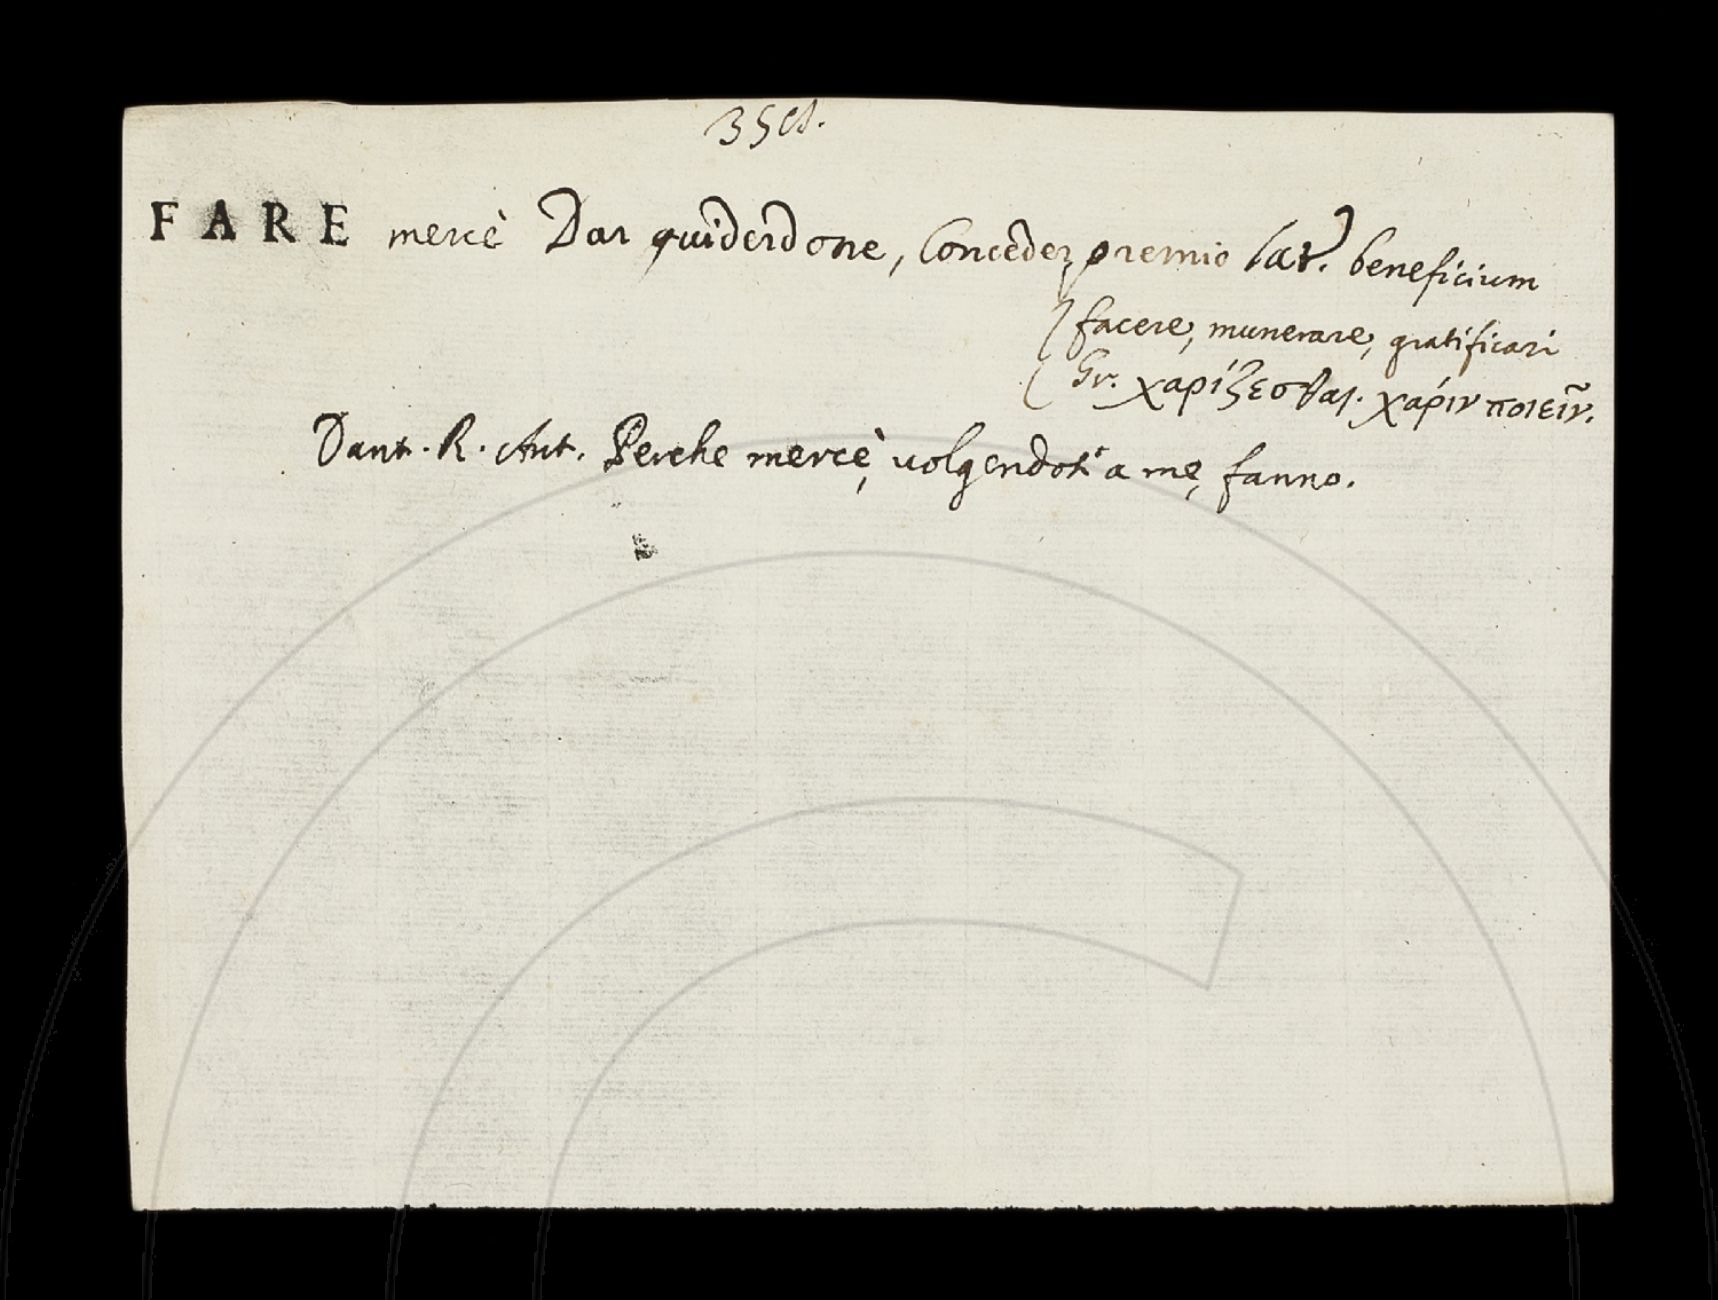 FARE mercè Dar guiderdone, Conceder premio Lat. beneficium
facere, munerare, gratificari
Gr. χαρίζεσθαι. χάριν ποιεῖν.
Dant. R. Ant. Perche mercè, volgendoti a me, fanno.